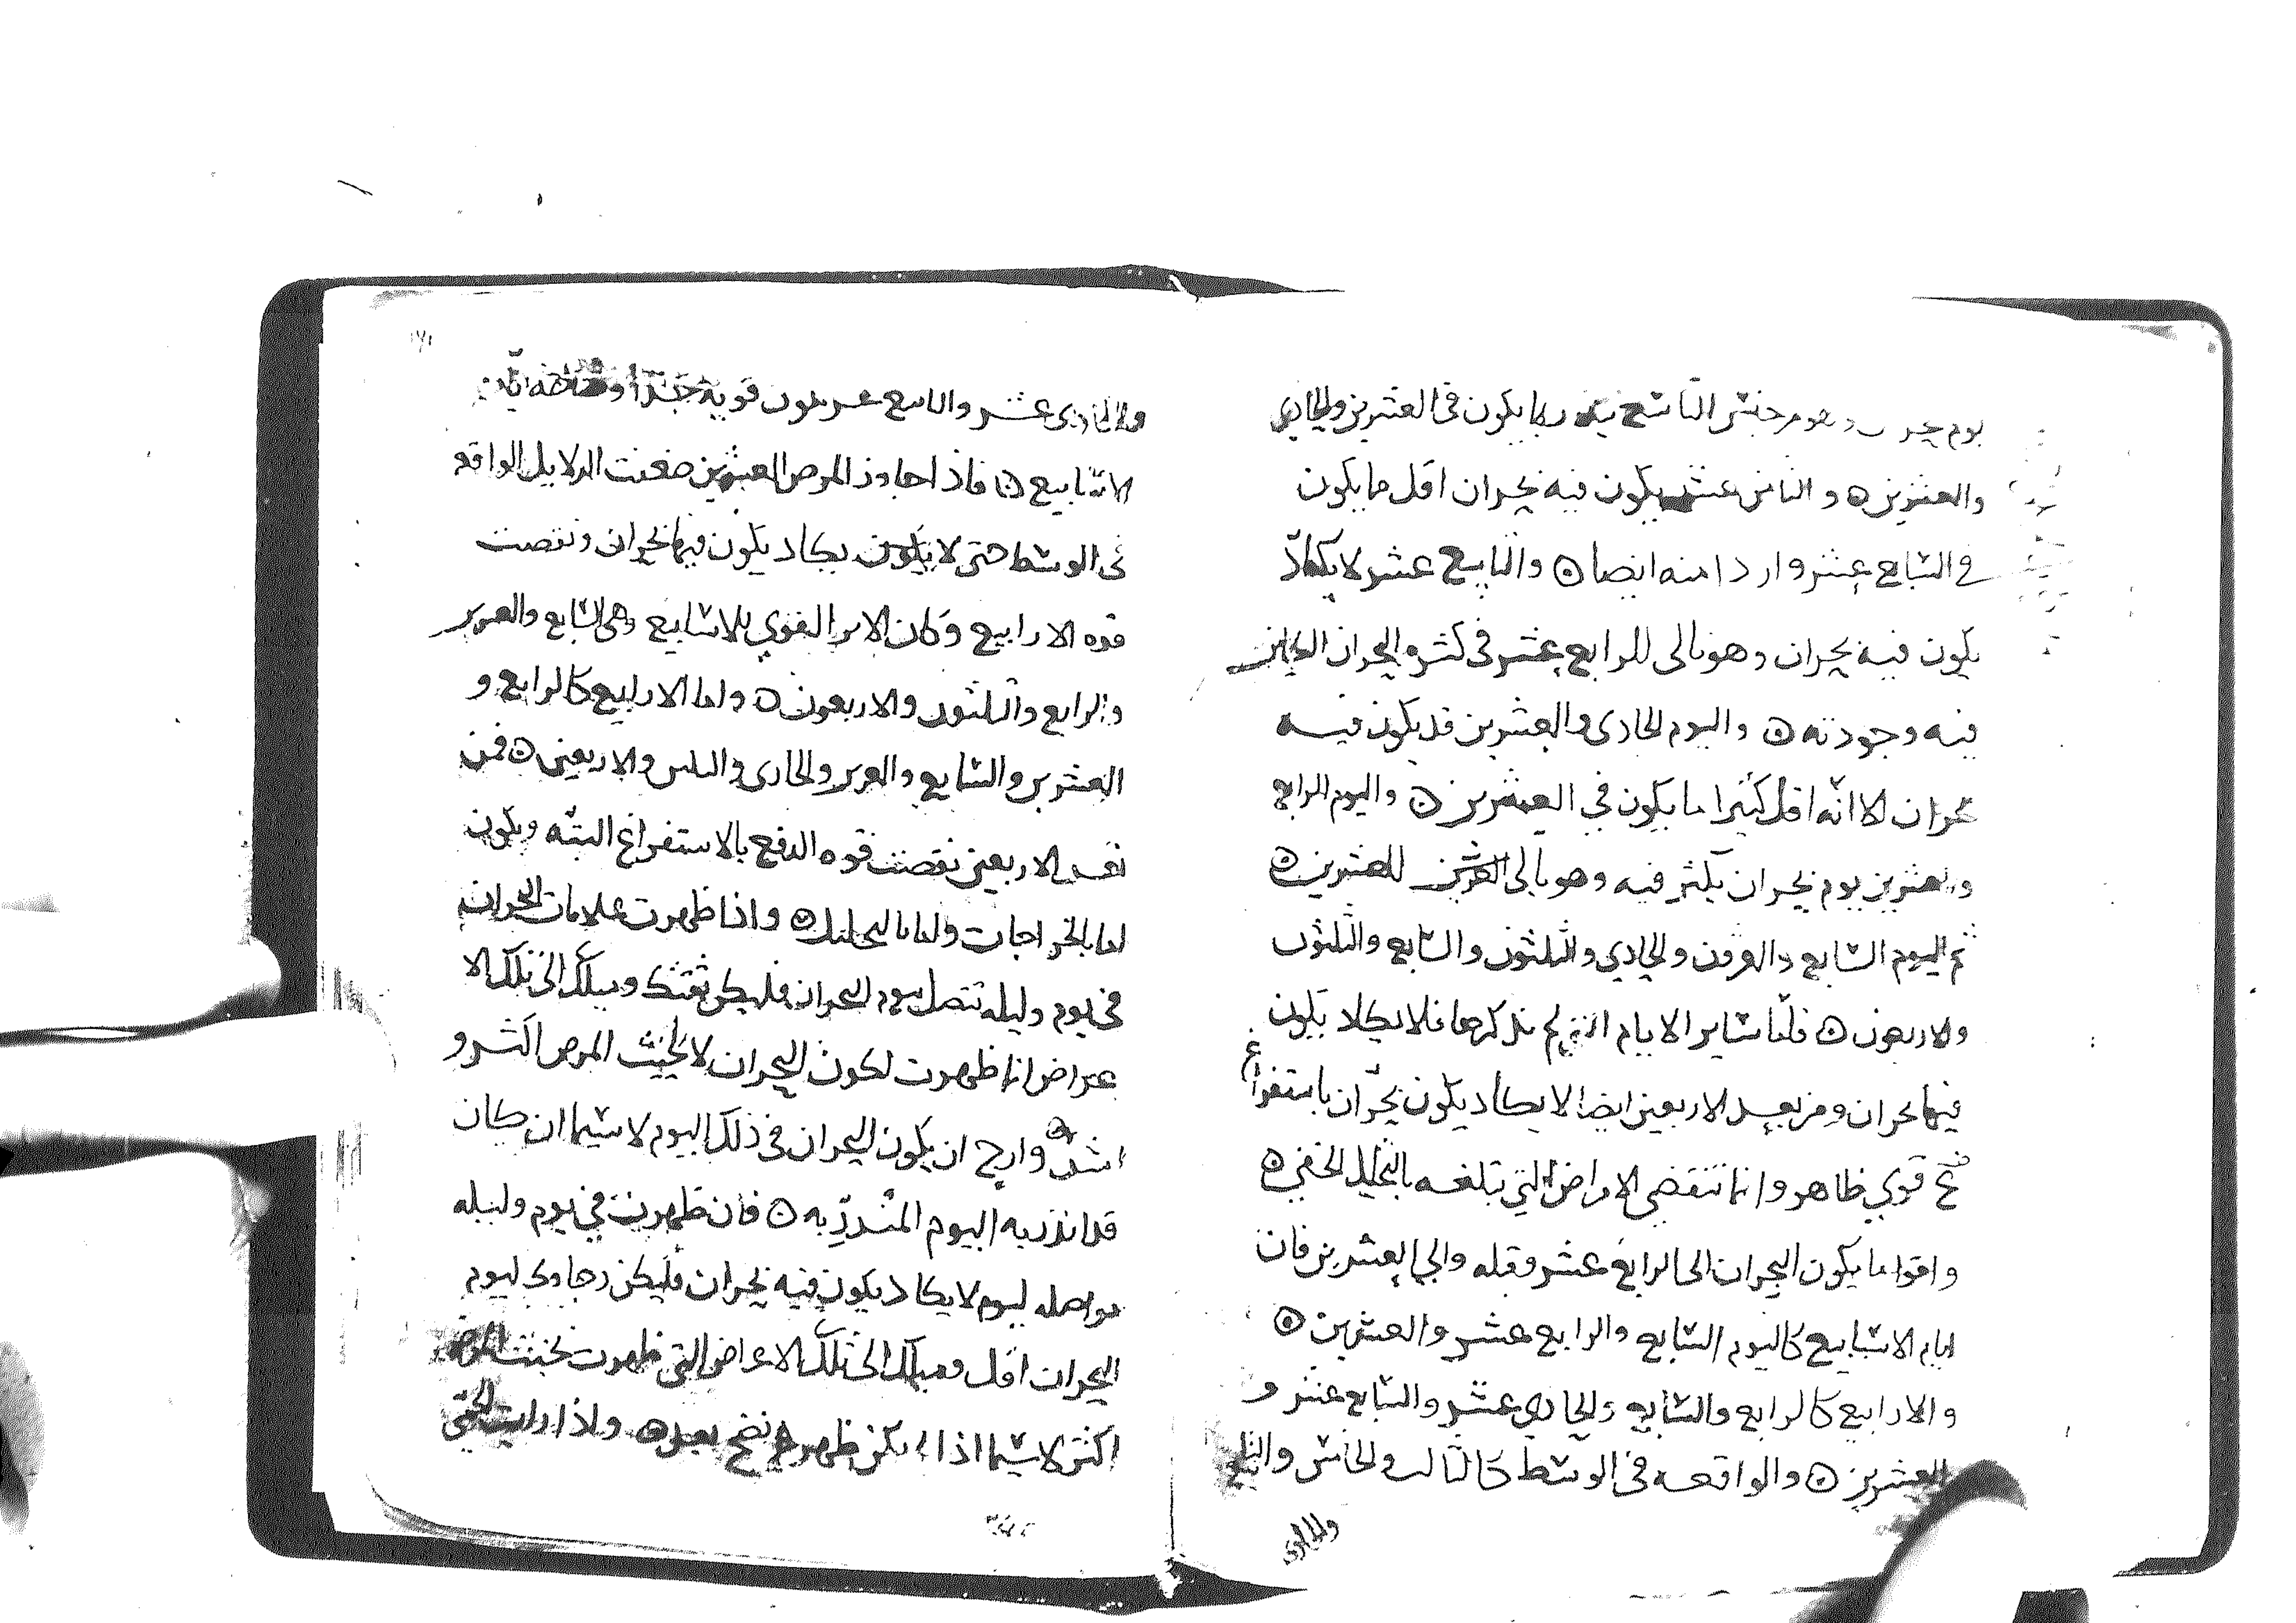 يوم وهو من جنس التاسع ربما يكون في العشرين والحادي
والعشرين ۞ والثامن عشر يكون فيه بحران اقل ما يكون
في السابع عشر واردا منه ايضا ۞ والتاسع عشر لا يكاد
يكون فيه بحران وهو تالي للرابع عشر في كثرة البحران الكاين
فيه وجودته ۞ واليوم الحادي والعشرين قد يكون فيه
بحران الا انّه اقل كثيرا ما يكون في العشرين ۞ واليوم الرابع
والعشرين يوم بحران يكثر فيه وهو تالي للعشرين ۞
ثم اليوم السابع والعشرون والحادي والثلثون والسابع والثلثون
والاربعون ۞ فامّا ساير الايام التي لم نذكرها فلا يكاد يكون
فيها بحران ومن بعد الاربعين ايضا لا يكاد يكون بحران باستفراغ
قوي ظاهر وانما تنقضي الامراض التي تبلغه بالتحليل الخفي ۞
واقوا ما يكون البحران الى الرابع عشر وقبله والى العشرين فان
ايام الاسابيع كاليوم السابع والرابع عشر والعشرين ۞
والارابيع كالرابع والسابع والحادي عشر والسابع عشر و
العشرين ۞ والواقعه في الوسط كالثالث والخامس والتاسع
والحادي
والحادي عشر والتاسع عشر يكون قوية جدّا
الاسابيع ۞ فاذا جاوز المرض العشرين ضعفت الدلايل الواقعه
في الوسط حتى لا يكاد يكون فيها بحران ونقصت
قوه الارابيع وكان الامر القوي للاسابيع وهي السابع والعشرين
والرابع والثلثون والاربعون ۞ واما الارابيع كالرابع و
العشرين والسابع والعشرين والحادي والثلثين والاربعين ۞ فمن
بعد الاربعين نقصت قوه الدفع بالاستفراغ البتّه ويكون
اما بالخراجات واما بالتحليل ۞ واذا ظهرت علامات البحران
في يوم وليله تتصل بيوم البحران فليكن ثقتك وميلك الى تلك الا
عراض انما ظهرت لكون البحران لا لخبث المرض اكثر و
اشدّ وارجح ان يكون البحران في ذلك اليوم لا سيما ان كان
قد انذر به اليوم المنذر به ۞ فان ظهرت في يوم وليله
مواصله ليوم لا يكاد يكون فيه بحران فليكن رجاوك ليوم
البحران اقل وميلك الى تلك الاعراض التي ظهرت لخبث المرض
اكثر لا سيما اذا لم يكن ظهر نضج بعد ۞ واذا رايت الحمّى